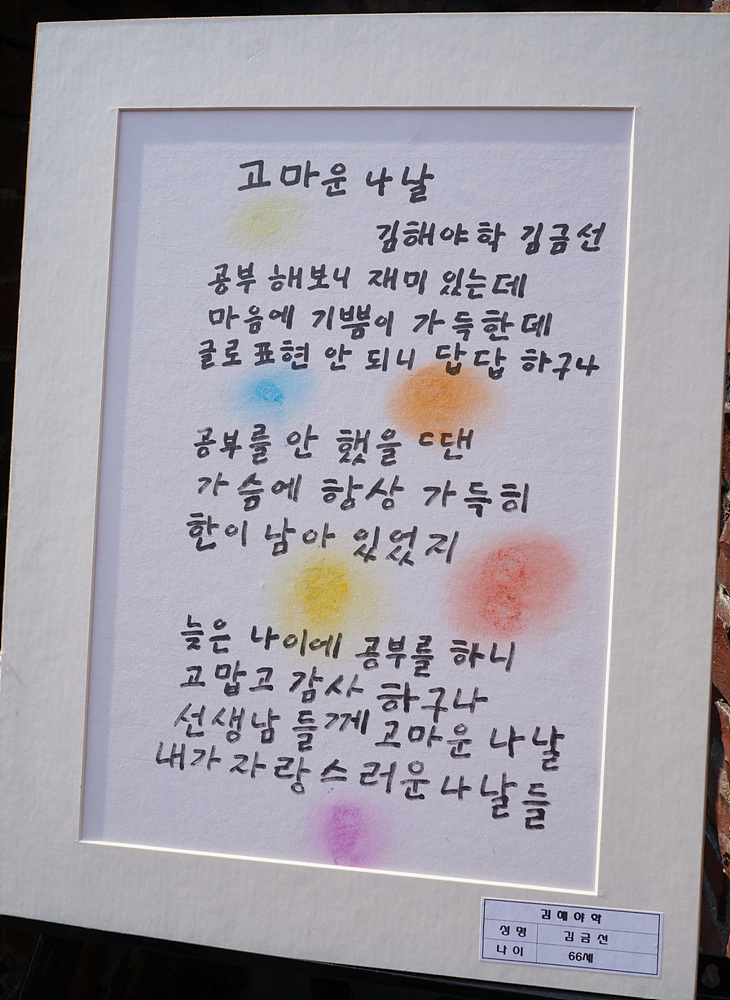 고마운 나날
김해야학 김금선
공부 해보니 재미 있는데
마음에 기쁨이 가득한데
글로 표현 안 되니 답답 하구나
공부를 안 했을 ㄷ댄
가슴에 항상 가득히
한이 남아 있었지
늦은 나이에 공부를 하니
고맙고 감사 하구나
선생님 들께 고마운 나날
내가 자랑스러운 나날들
김해야학
성명 김금선
나이 66세